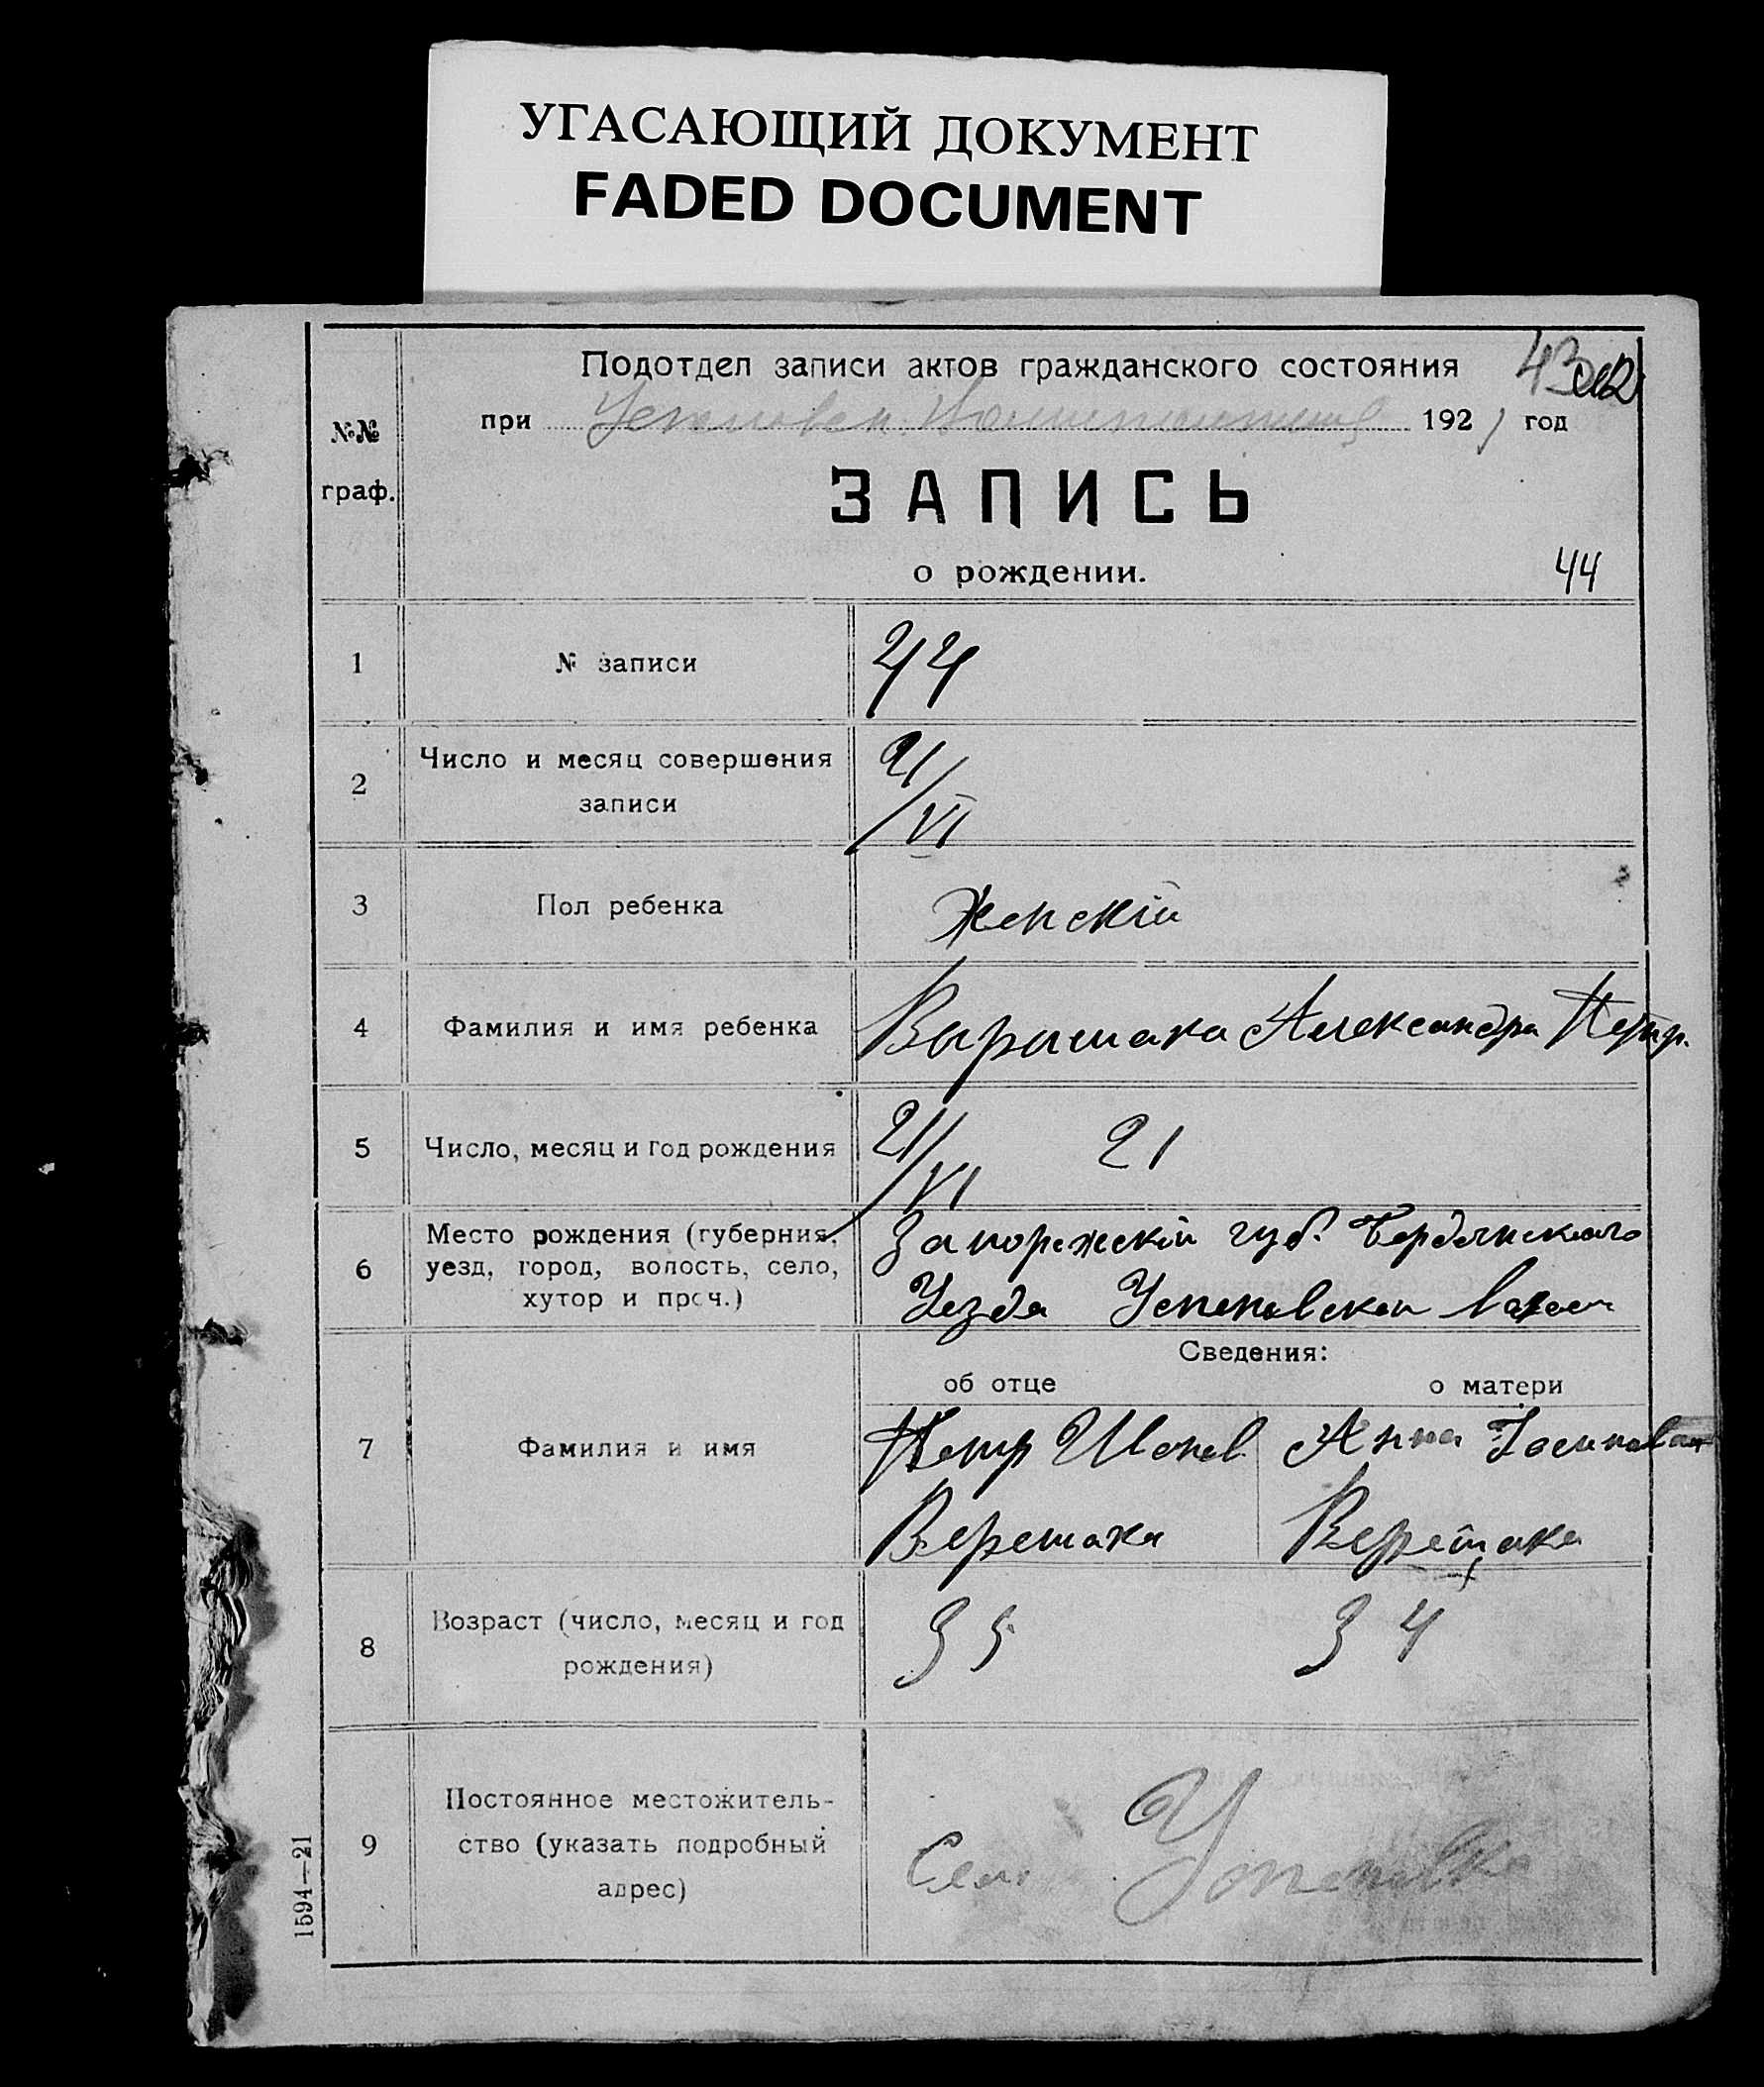 УГАСАЮЩИЙ ДОКУМЕНТ
FADED DOCUMENT
Подотдел записи актов гражданского состояния
43
при 192 1 год
№№
граф.
ЗАПИСЬ
о рождении.
44
1
№ записи
44
2
Число и месяц совершения
записи
21/VI
3
Пол ребенка
Женскій
4
Фамилия и имя ребенка
Вырышака Александра Петр.
5
Число, месяц и год рождения
21/VI 21
6
Место рождения (губерния,
уезд, город, волость, село,
хутор и проч.)
Запорежскій губ. Бердянского
Уезда Успеновской
Сведения:
об отце
о матери
7
Фамилия и имя
Петр Анна
Верешака Верещака
8
Возраст (число, месяц и год
рождения)
35 34
9
Постоянное местожитель-
ство (указать подробный
адрес)
Село Успеновка
1594—21